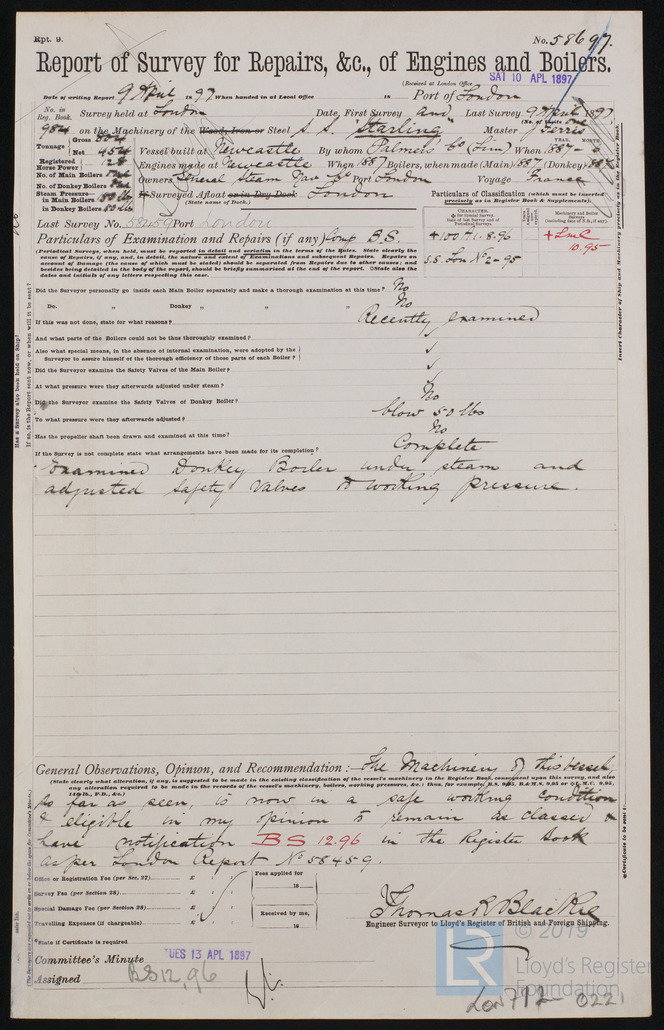 Rpt. 9. No. 58697.
Report of Survey for Repairs, &c., of Engines and Boilers.
(Received at London Office SAT 10 APL 1897
Date of writing Report 9 April 1897 When handed in at Local Office 18 Port of London
No. in Reg. Book. Survey held at London Date, First Survey and Last Survey 9 April 1897
984 on the Machinery of the Wood, Iron or Steel S. S. "Starling" Master Ferris
Tonnage Gross Net 454 Vessel built at Newcastle By whom Palmers Co (Lim) When 1887-
Registered Horse Power Engines made at Newcastle When 1887 Boilers, when made (Main) 1887 (Donkey)
No. of Main Boilers Owners General Steam Nav Co Port London Voyage France
No. of Donkey Boilers
Steam Pressure in Main Boilers 150 lb If Surveyed Afloat or in Dry Dock London
(State name of Dock.)
in Donkey Boilers 50 lb
Particulars of Classification (which must be inserted precisely as in Register Book & Supplements).
Last Survey No. 58459 Port London
Particulars of Examination and Repairs (if any) Compt B.S.
(Periodical Surveys, when held, must be reported in detail and seriatim in the terms of the Rules. State clearly the
cause of Repairs, if any, and, in detail, the nature and extent of Examinations and subsequent Repairs. Repairs on
account of Damage (the cause of which must be stated) should be separated from Repairs due to other causes; and
besides being detailed in the body of the report, should be briefly summarised at the end of the report. State also the
dates and initials of any letters respecting this case.
+100 A1. 8.96
S.S. Lon No 2-95
+LMC
10.95
Did the Surveyor personally go inside each Main Boiler separately and make a thorough examination at this time? No
Do. " Donkey " " " No
If this was not done, state for what reasons? Recently examined
And what parts of the Boilers could not be thus thoroughly examined?
Also what special means, in the absence of internal examination, were adopted by the
Surveyor to assure himself of the thorough efficiency of those parts of each Boiler?
Did the Surveyor examine the Safety Valves of the Main Boiler?
At what pressure were they afterwards adjusted under steam?
Did the Surveyor examine the Safety Valves of Donkey Boiler? No
To what pressure were they afterwards adjusted? blow 50 lbs
Has the propeller shaft been drawn and examined at this time? No
If the Survey is not complete state what arrangements have been made for its completion? Complete
Examined Donkey Boiler under steam and
adjusted safety valves to working pressure.
General Observations, Opinion, and Recommendation:— The Machinery of this vessel,
(State clearly what alteration, if any, is suggested to be made in the existing classification of the vessel's machinery in the Register Book, consequent upon this survey, and also
any alteration required to be made in the records of the vessel's machinery, boilers, working pressures, &c.: thus, for example, B.S. 9.95, B.&M.S. 9.95 or L.M.C. 9.95,
140 lb., F.D., &c.)
so far as seen, is now in a safe working condition
& eligible in my opinion to remain as classed &
have notification BS 12.96 in the Register Book
as per London Report No 58459.
Office or Registration Fee (per Sec. 27) £ Fees applied for
18
Survey Fee (per Section 28) £
Special Damage Fee (per Section 28) £ Received by me,
Travelling Expenses (if chargeable) £ 18
Thomas R Blackie
Engineer Surveyor to Lloyd's Register of British and Foreign Shipping.
State if Certificate is required
Committee's Minute TUES 13 APL 1897
Assigned BS 12,96
LON792-0221
© 2019
LR
Lloyd's Register
Foundation